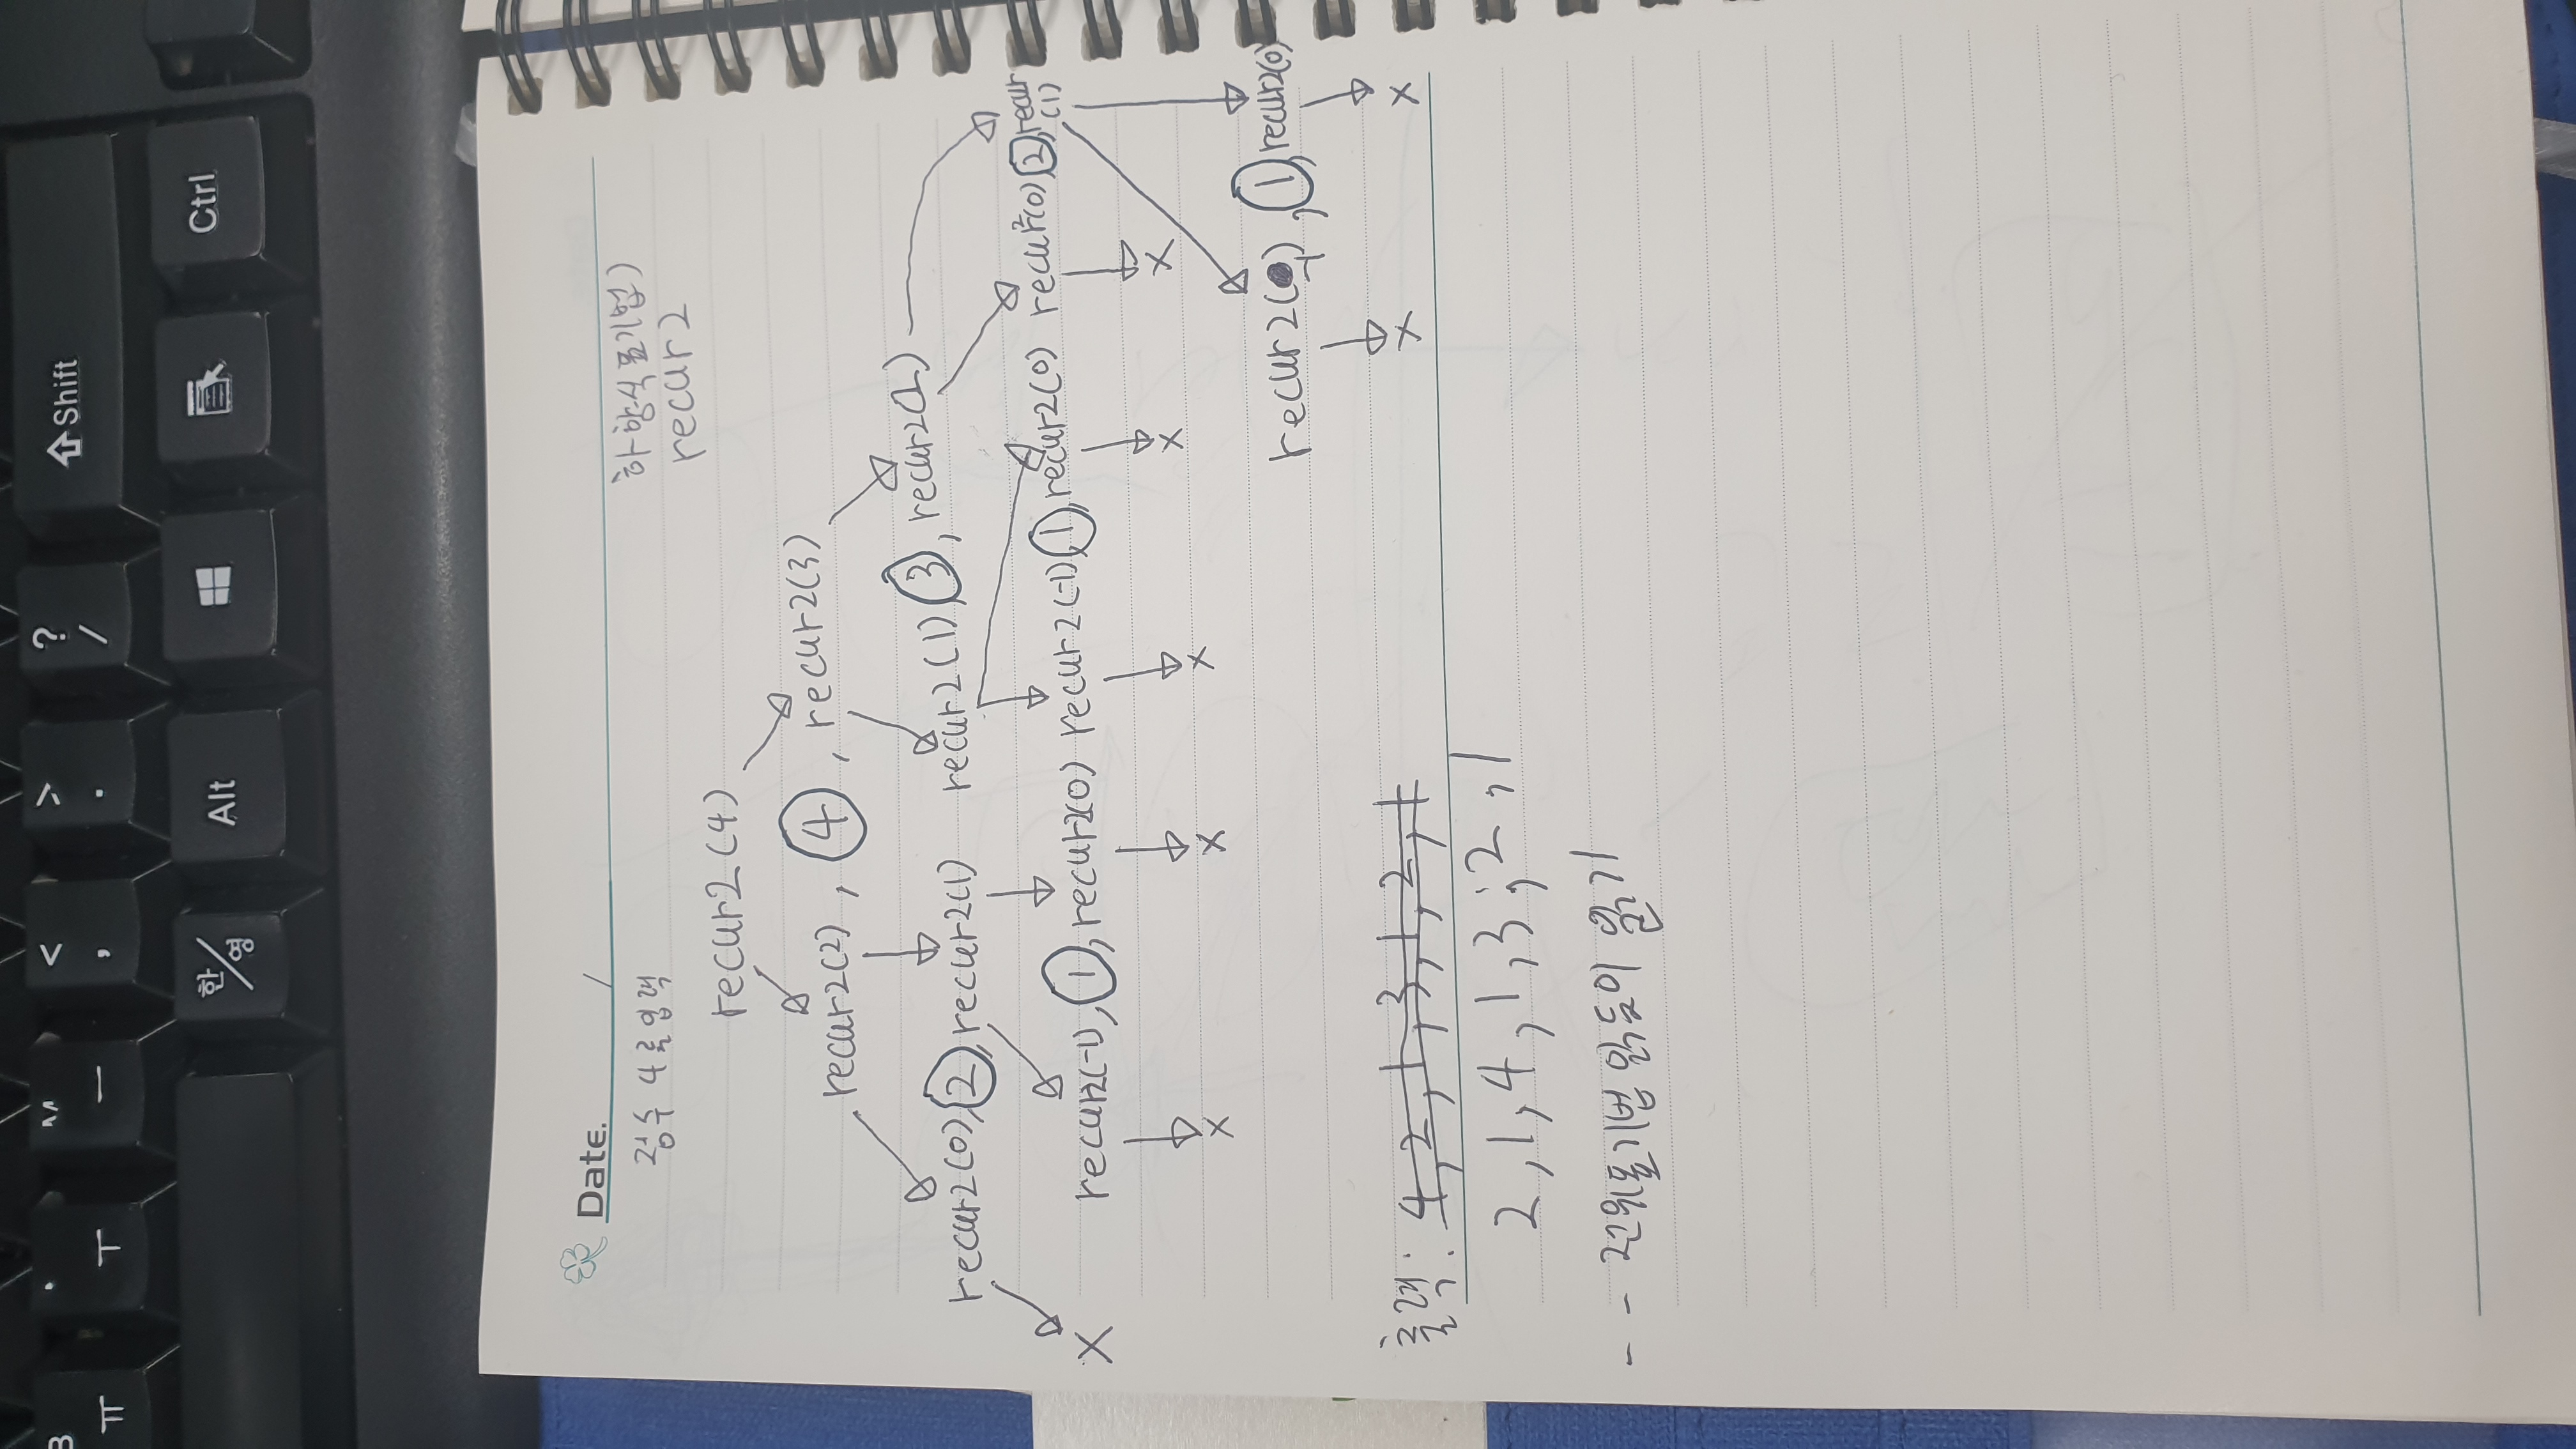 B ㅠ ㅜ M ㅡ < , > . ? / Shift
한/영 Alt Ctrl
Date. /
정수 4를 입력
하향식 표기법)
recur2
recur2(4)
recur2(2), 4, recur2(3)
recur2(0), 2, recur2(1) recur2(1) 3, recur2(2)
X recur2(-1), 1, recur2(0) recur2(-1), 1, recur2(0) recur2(0), 2, recur(1)
x x x x x
recur2(-1), 1, recur2(0)
x x
출력: 4, 2, 1, 3, 1, 2, 1
2, 1, 4, 1, 3, 2, 1
-- 전위표기법 읽듯이 읽기